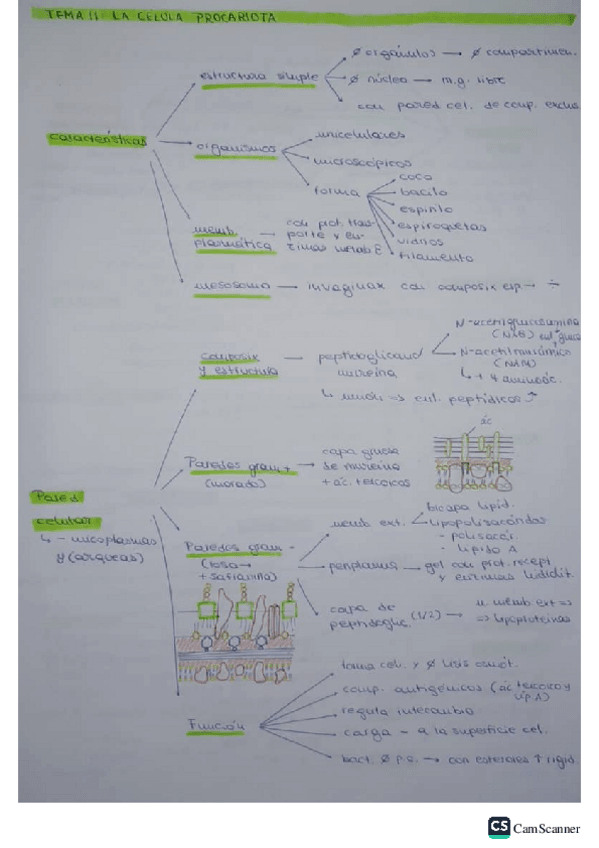 TEMA 11 LA CÉLULA PROCARIOTA
características
estructura simple
Ø orgánulos → Ø compartimen.
Ø núcleo → m.g. libre
con pared cel. de comp. exclus
organismos
unicelulares
microscópicos
forma
coco
bacilo
espirilo
espiroquetas
vibrios
filamento
memb
plasmática
con prot. tras-
porte y en-
zimas metab E
mesosoma → invaginax con composix esp → ÷
Pared
celular
4 - micoplasmas
y (arqueas)
composix
y estructura
peptidoglicano
mureína
N-acetilglucosamina
(NAG)
N-acetilmurámico
(NAM)
↳ + 4 aminoác.
↳ unión => enl. peptídicos
Paredes gram +
(morado)
capa gruesa
de mureína
+ ác. teicoicos
ác
Paredes gram -
(rosa →
+ safranina)
memb ext.
bicapa lipid.
lipopolisacáridos
- polisacár.
- lípido A
periplasma → gel con prot. recept
y enzimas hidrolit.
capa de
peptidoglic.
(1/2) → u. memb ext =>
=> lipoproteínas
Función
forma cel. y Ø lisis osmót.
comp. antigénicos (ác teicoico y
lip. A)
regula intercambio
carga - a la superficie cel.
bact. Ø p.c. → con esteroles ↑ rigid.
CS CamScanner